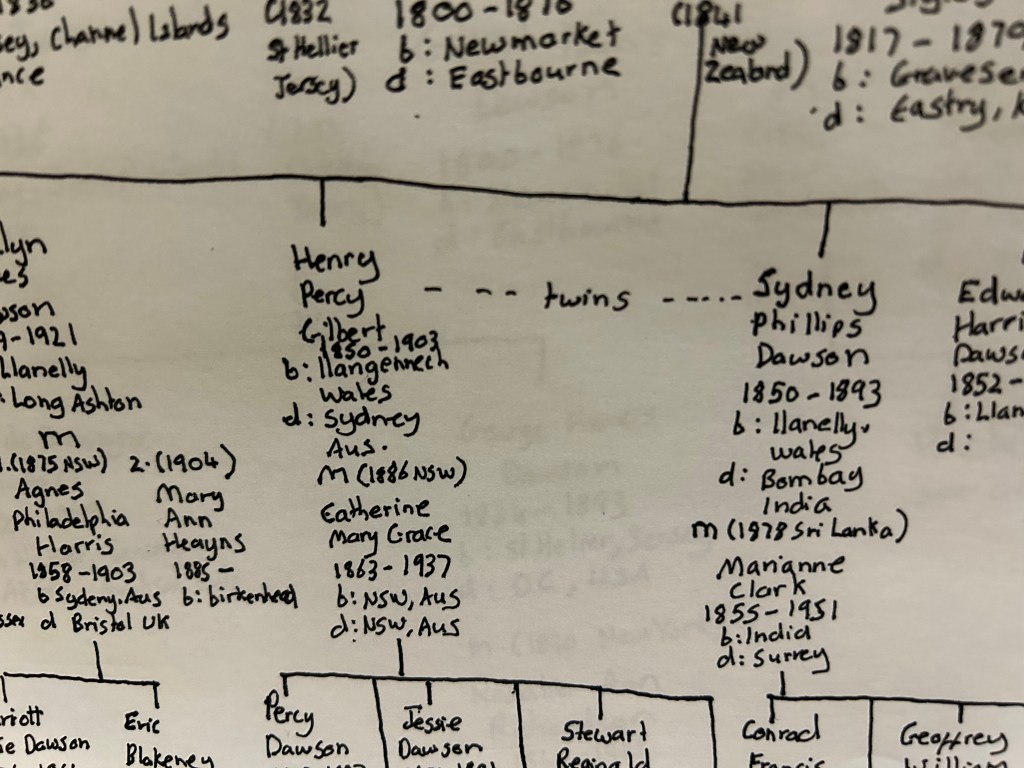 (1832
1800 - 1876
(1841
ey, Channel Islands
St Hellier
b: Newmarket
New
1817 - 1870
Jersey)
d: Eastbourne
Zealand)
b:
d: Eastry,
Henry
Percy - - - - twins - - - - - Sydney
Gilbert
1850 - 1903
b: llangennech
Wales
d: Sydney
Aus.
M (1886 NSW)
Catherine
Mary Grace
1863 - 1937
b: NSW, Aus
d: NSW, Aus
Phillips
Dawson
1850 - 1893
b: llanelly.
Wales
d: Bombay
India
m (1878 Sri Lanka)
Marianne
Clark
1855 - 1951
b: India
d: Surrey
- 1921
Llanelly
: Long Ashton
m
1. (1875 NSW) 2. (1904)
Agnes
Philadelphia
Harris
1858 - 1903
b Sydeny. Aus
d Bristol UK
Mary
Ann
Heayns
1885 -
b: birkenhead
Harri
Daws
1852 -
b: Llan
d:
ie Dawson
Eric
Blakeney
Percy
Dawson
Jessie
Dawson
Stewart
Reginald
Conrad
Francis
Geoffrey
William